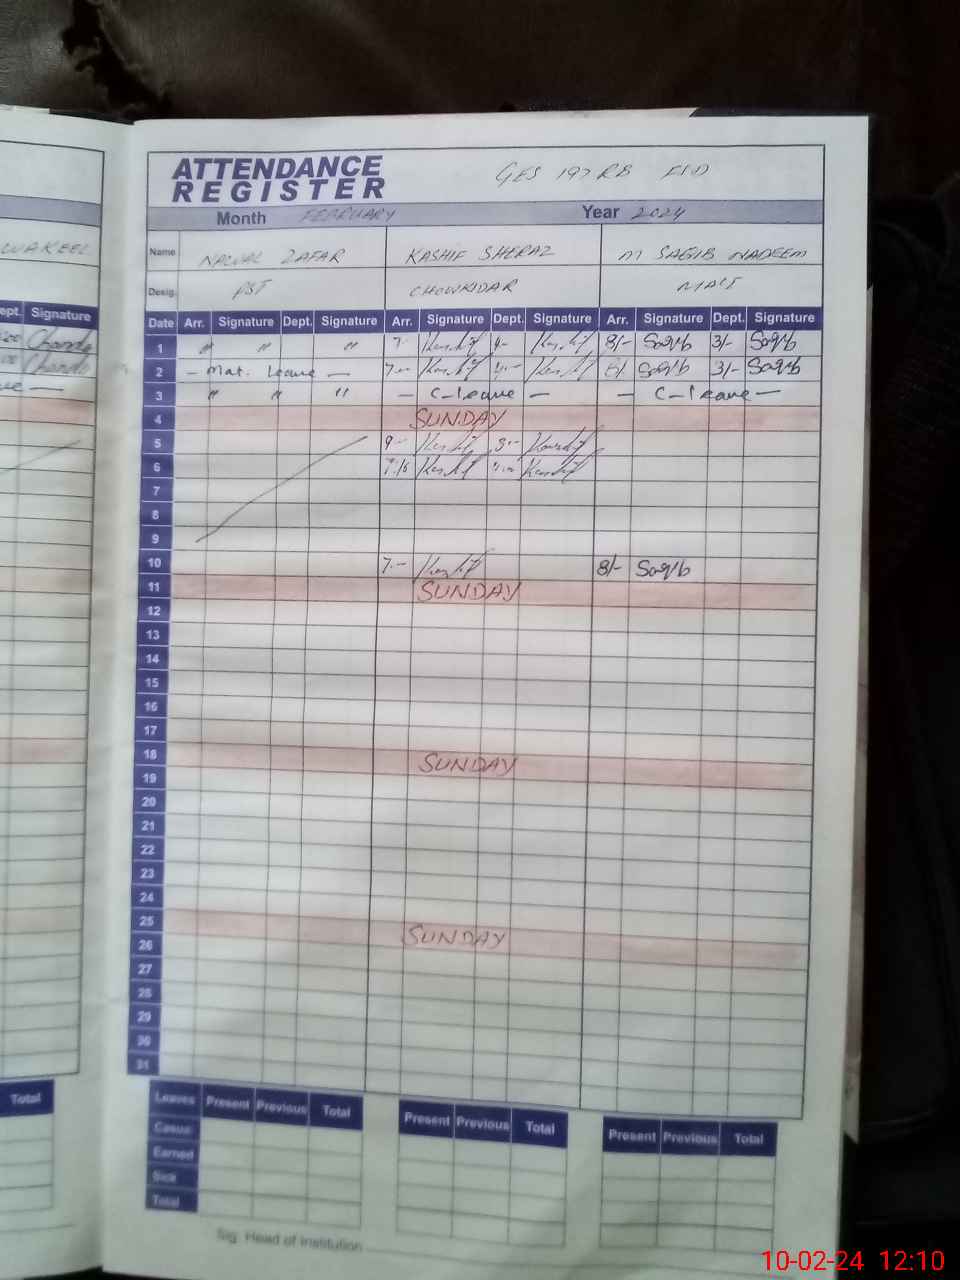 ATTENDANCE
REGISTER
GES 197 RB FSD
Month FEBRUARY Year 2024
WAKEEL
Name NAWAL ZAFAR KASHIF SHERAZ M SAQIB NADEEM
Desig. PST CHOWKIDAR MALI
ept. Signature
Date Arr. Signature Dept. Signature Arr. Signature Dept. Signature Arr. Signature Dept. Signature
1 " " " 7- Kashif 4- Kashif 8/- Saqib 3/- Saqib
2 - Mat. Leave - 7- Kashif 4- Kashif 8/- Saqib 3/- Saqib
3 " " " - C-leave - - C-leave -
4 SUNDAY
5 9- Kashif 3- Kashif
6 Kashif Kashif
7
8
9
10 7- Kashif 8/- Saqib
11 SUNDAY
12
13
14
15
16
17
18 SUNDAY
19
20
21
22
23
24
25 SUNDAY
26
27
28
29
30
31
Total
Leaves Present Previous Total Present Previous Total Present Previous Total
Casual
Earned
Sick
Total
Sig. Head of Institution
10-02-24 12:10